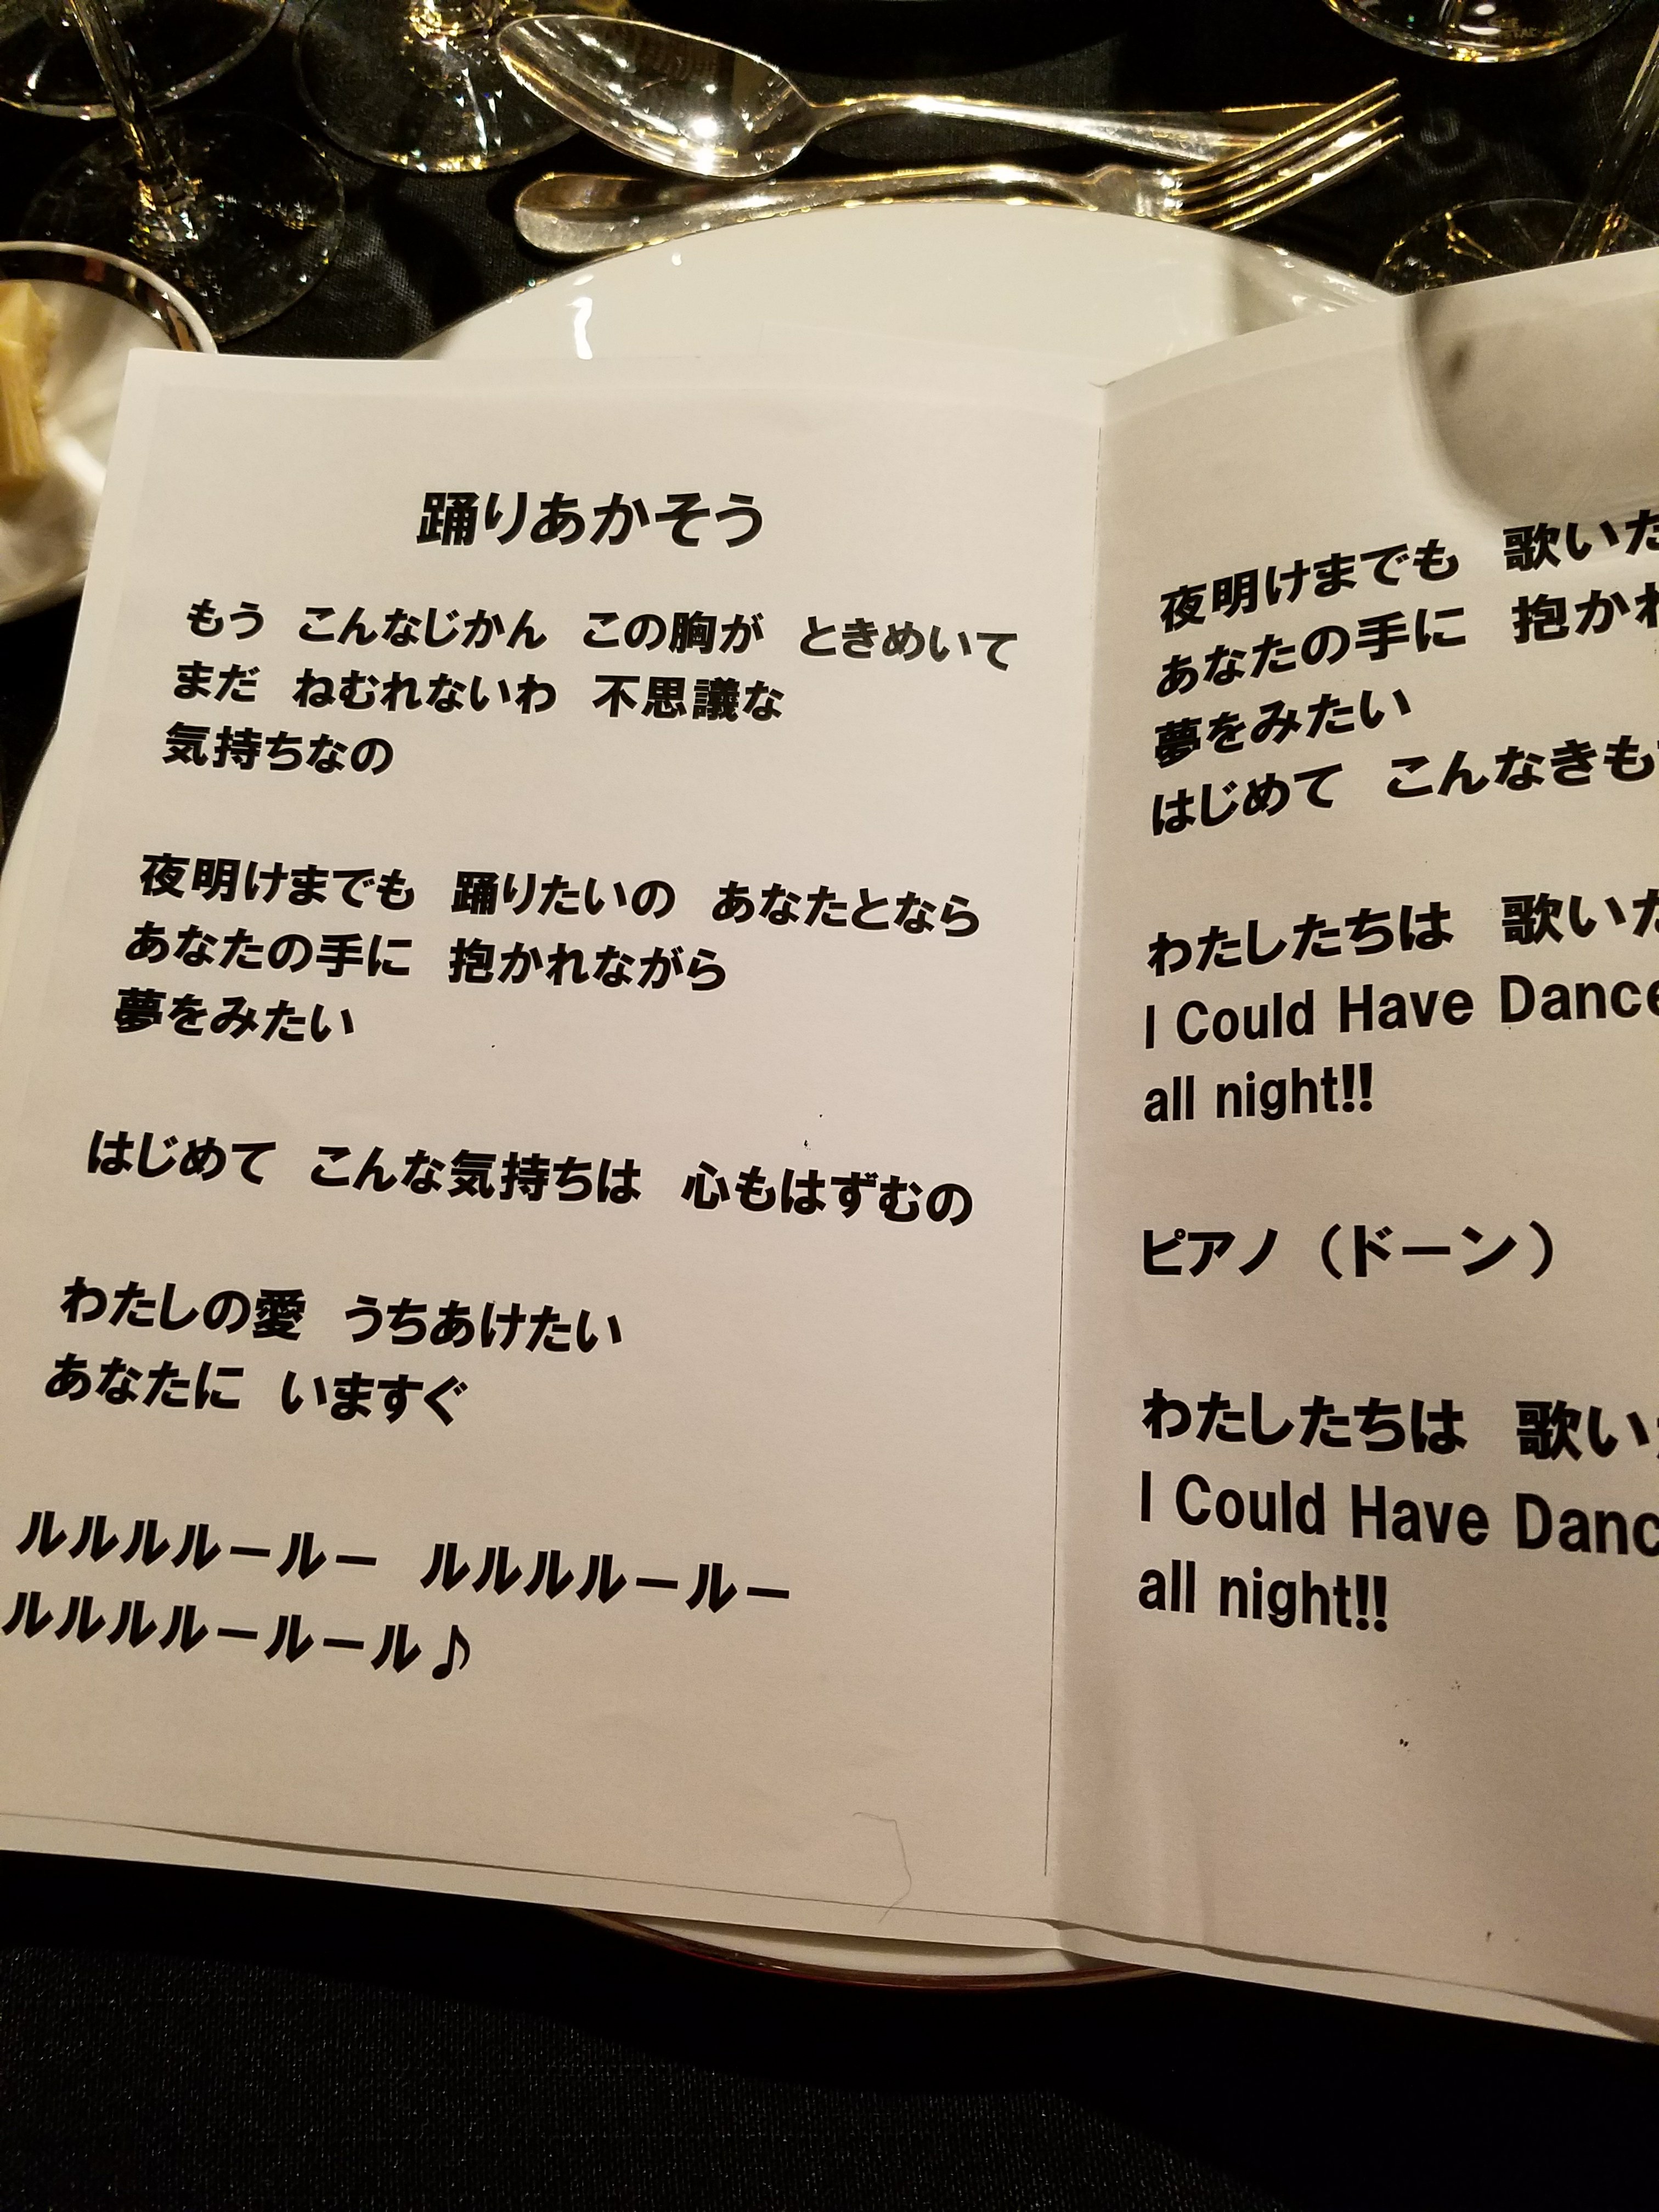 踊りあかそう
もう こんなじかん この胸が ときめいて
まだ ねむれないわ 不思議な
気持ちなの
夜明けまでも 踊りたいの あなたとなら
あなたの手に 抱かれながら
夢をみたい
はじめて こんな気持ちは 心もはずむの
わたしの愛 うちあけたい
あなたに いますぐ
ルルルルールー ルルルルールー
ルルルルールール♪
夜明けまでも 歌いた
あなたの手に 抱かれ
夢をみたい
はじめて こんなきも
わたしたちは 歌いた
I Could Have Dance
all night!!
ピアノ（ドーン）
わたしたちは 歌い
I Could Have Danc
all night!!